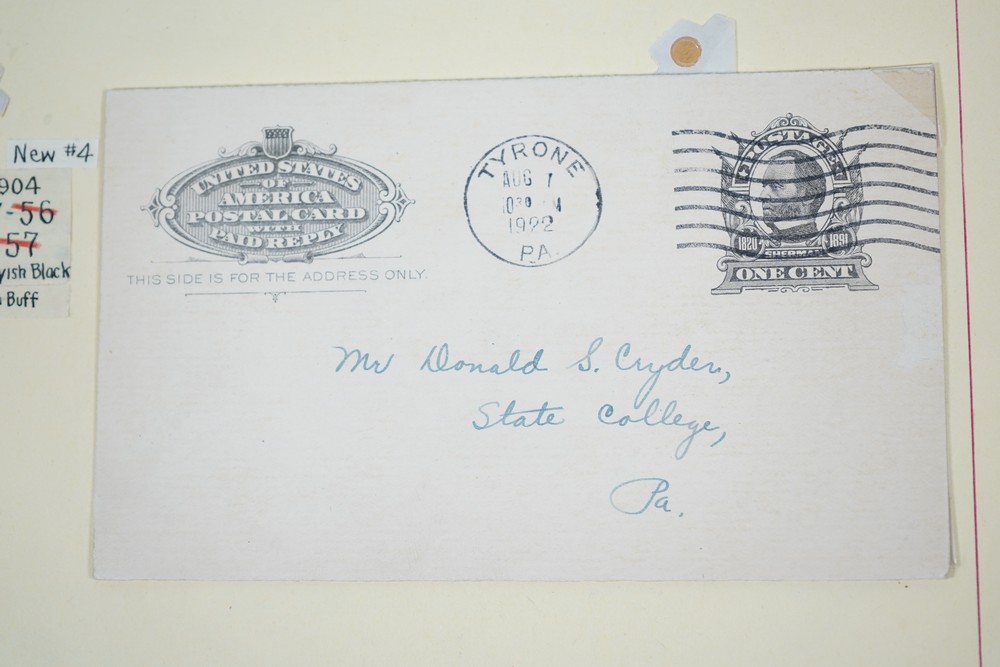 New #4
904
-56
57
yish Black
Buff
UNITED STATES
OF
AMERICA
POSTAL CARD
WITH
PAID REPLY
THIS SIDE IS FOR THE ADDRESS ONLY.
TYRONE
AUG 7
1922
PA.
POSTAGE
1820
1891
SHERMAN
ONE CENT
Mr Donald S. Cryder,
State College,
Pa.